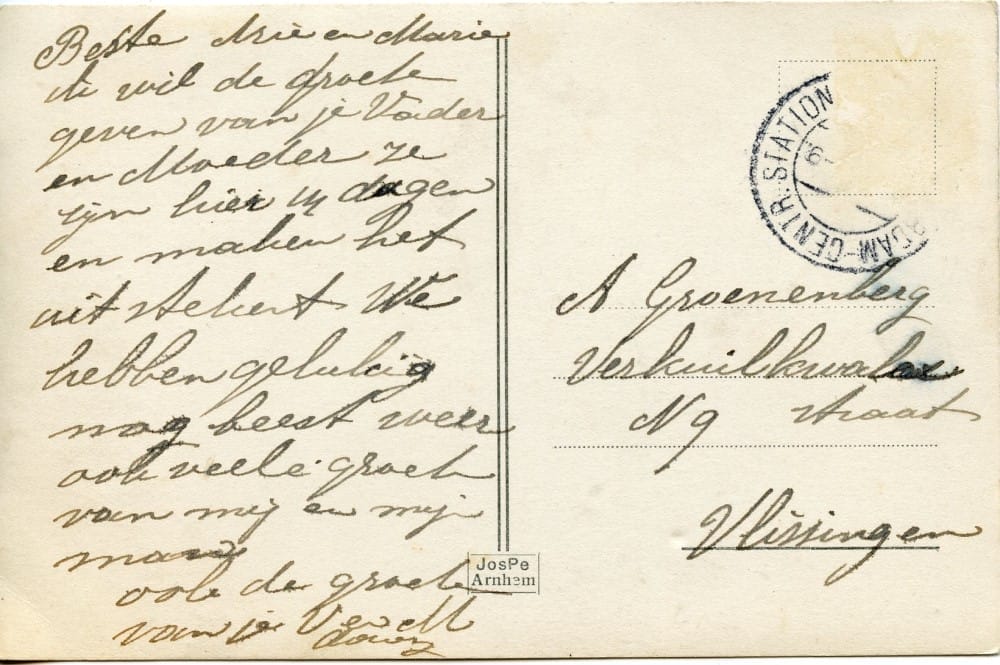 Beste Arie en Marie
ik wil de groete
geven van je Vader
en Moeder ze
zijn hier 14 dagen
en maken het
uit stekent We
hebben gelukig
nog beest weer
ook veele groet
van mij en mijn
man
ook de groete
van je V en M
JosPe
Arnhem
RDAM-CENTR. STATION
6-
A Groenenberg
Verkuilkwalax
N 9 straat
Vlissingen